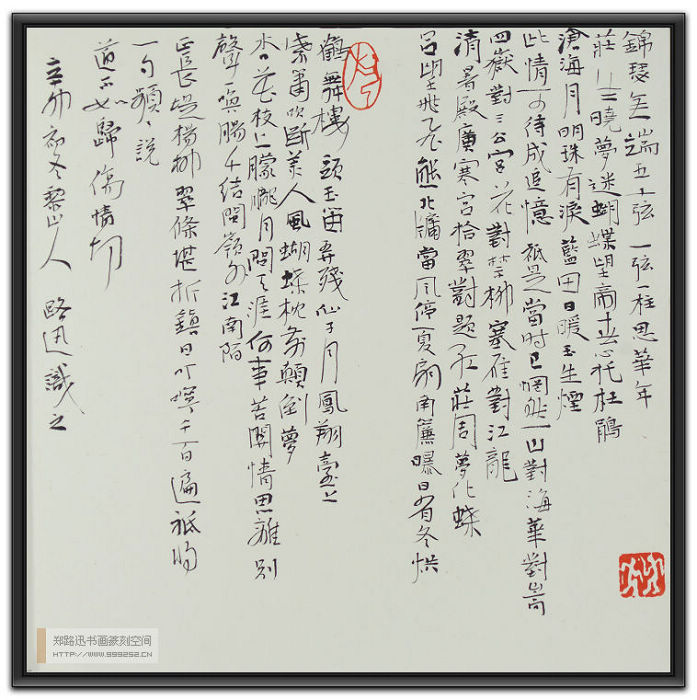 錦瑟無端五十弦一弦一柱思華年
莊生曉夢迷蝴蝶望帝春心托杜鵑
滄海月明珠有淚藍田日暖玉生煙
此情可待成追憶祇是當时已惘然山對海華對嵩
四嶽對三公宮花對禁柳塞雁對江龍
清暑殿廣寒宮拾翠對題紅莊周夢化蝶
呂望兆飛熊北牖當風停夏扇南簾曝日省冬烘
鶴舞樓頭玉笛弄殘仙子月鳳翔臺上
紫簫吹斷美人風蝴蝶枕前顛倒夢
杏花枝上朦朧月問天涯何事苦關情思離別
聲一喚腸千結閩嶺外江南陌
長堤楊柳翠條堪折鎮日叮嚀千百遍祗將
一句頻頻說
道不如歸傷情切
辛卯初冬黎山人 路迅識之
郑路迅书画篆刻空间
HTTP://WWW.999252.CN